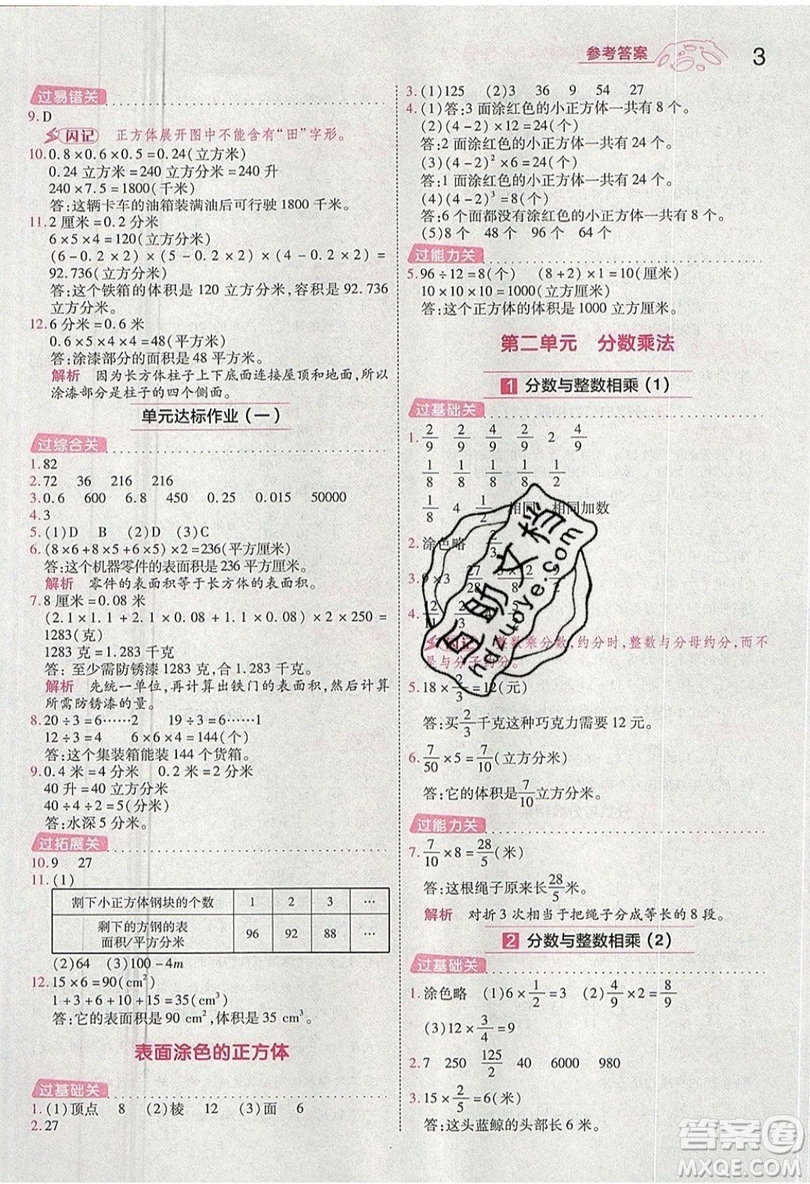 参考答案 3
过易错关
9.D
闪记 正方体展开图中不能含有“田”字形。
10.0.8×0.6×0.5=0.24(立方米)
0.24 立方米=240 立方分米=240 升
240÷240×7.5=1800(千米)
答:这辆卡车的油箱装满油后可行驶 1800 千米。
11.2 厘米=0.2 分米
6×5×4=120(立方分米)
(6-0.2×2)×(5-0.2×2)×(4-0.2×2)=
92.736(立方分米)
答:这个铁箱的体积是 120 立方分米,容积是 92.736
立方分米。
12.6 分米=0.6 米
0.6×4×5×4=48(平方米)
答:涂漆部分的面积是 48 平方米。
解析 因为长方体柱子上下底面连接屋顶和地面,所以
涂漆部分是柱子的四个侧面。
单元达标作业(一)
过综合关
1.82
2.72 36 216 216
3.0.6 600 6.8 450 0.25 0.015 50000
4.3
5.(1)D (2)D (3)C
6.(8×6+8×5+6×5)×2=236(平方厘米)
答:这个机器零件的表面积是 236 平方厘米。
解析 零件的表面积等于长方体的表面积。
7.8 厘米=0.08 米
(2.1×1.1+2.1×0.08+1.1×0.08)×2×250=
1283(克)
1283 克=1.283 千克
答: 至少需防锈漆 1283 克,合 1.283 千克。
解析 先统一单位,再计算出铁门的表面积,然后计算
所需防锈漆的量。
8.20÷3=6……2 19÷3=6……1
12÷3=4 6×6×4=144(个)
答:这个集装箱能装 144 个货箱。
9.0.4 米=4 分米 20 厘米=2 分米
40 升=40 立方分米
40÷4÷2=5(分米)
答:水深 5 分米。
过拓展关
10.9 27
11.(1)
割下小正方体钢块的个数 1 2 3 …
剩下的方钢的表
面积/平方分米 96 92 88 …
(2)64 (3)100-4m
12.15×6=90(cm²)
1+3+6+10+15=35(cm³)
答:它的表面积是 90 cm²,体积是 35 cm³。
表面涂色的正方体
过基础关
1.(1)顶点 8 (2)棱 12 (3)面 6
2.27
3.(1)125 (2)3 36 9 54 27
4.(1)答:3 面涂红色的小正方体一共有 8 个。
(2)(4-2)×12=24(个)
答:2 面涂红色的小正方体一共有 24 个。
(3)(4-2)²×6=24(个)
答:1 面涂红色的小正方体一共有 24 个。
(4)(4-2)³=8(个)
答:6 个面都没有涂红色的小正方体一共有 8 个。
(5)8个 48个 96个 64个
过能力关
5.96÷12=8(个) 8+2=10(厘米)
10×10×10=1000(立方厘米)
答:这个正方体的体积是 1000 立方厘米。
第二单元 分数乘法
1 分数与整数相乘(1)
过基础关
1.2/9 2/9 2/9 2/9 2 4/9
1/8 1/8 1/8 1/8 1/2
1/8 4 1/2 相同 相同加数
2.涂色略
闪记 整数乘分数,约分时,整数与分母约分,而不
是与分子约分。
5.18×2/3=12(元)
答:买2/3千克这种巧克力需要 12 元。
6.7/50×5=7/10(立方分米)
答:它的体积是7/10立方分米。
过能力关
7/10×8=28/5(米)
答:这根绳子原来长28/5米。
解析 对折 3 次相当于把绳子分成等长的 8 段。
2 分数与整数相乘(2)
过基础关
1.涂色略 (1)6×1/2=3 (2)4×2/9=8/9
(3)12×3/4=9
2.7 250 125/2 40 6000 980
3.15×2/5=6(米)
答:这头蓝鲸的头部长 6 米。
互助文档
hdzuoye.com
答案圈
MXQE.COM